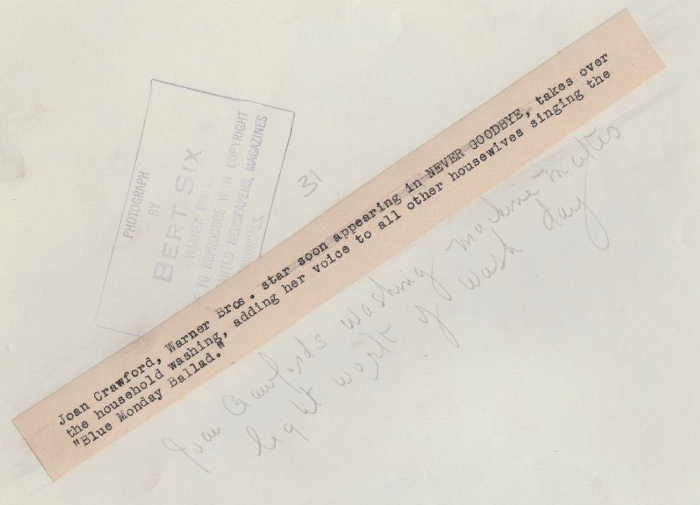 PHOTOGRAPH
BY
BERT SIX
WARNER BROS.
TO REPRODUCE WITH COPYRIGHT
NEWSPAPERS, MAGAZINES
31
Joan Crawford, Warner Bros. star soon appearing in NEVER GOODBYE, takes over
the household washing, adding her voice to all other housewives singing the
"Blue Monday Ballad."
Joan Crawfords washing machine makes
light work of wash day